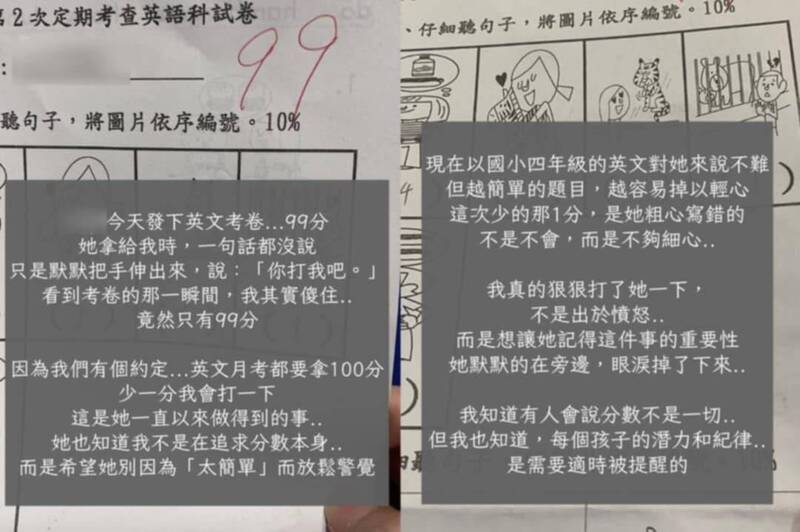 第2次定期考查英語科試卷
99
聽句子，將圖片依序編號。10%
今天發下英文考卷...99分
她拿給我時，一句話都沒說
只是默默把手伸出來，說：「你打我吧。」
看到考卷的那一瞬間，我其實傻住..
竟然只有99分
因為我們有個約定...英文月考都要拿100分
少一分我會打一下
這是她一直以來做得到的事..
她也知道我不是在追求分數本身..
而是希望她別因為「太簡單」而放鬆警覺
、仔細聽句子，將圖片依序編號。10%
現在以國小四年級的英文對她來說不難
但越簡單的題目，越容易掉以輕心
這次少的那1分，是她粗心寫錯的
不是不會，而是不夠細心..
我真的狠狠打了她一下，
不是出於憤怒..
而是想讓她記得這件事的重要性
她默默的在旁邊，眼淚掉了下來..
我知道有人會說分數不是一切..
但我也知道，每個孩子的潛力和紀律..
是需要適時被提醒的